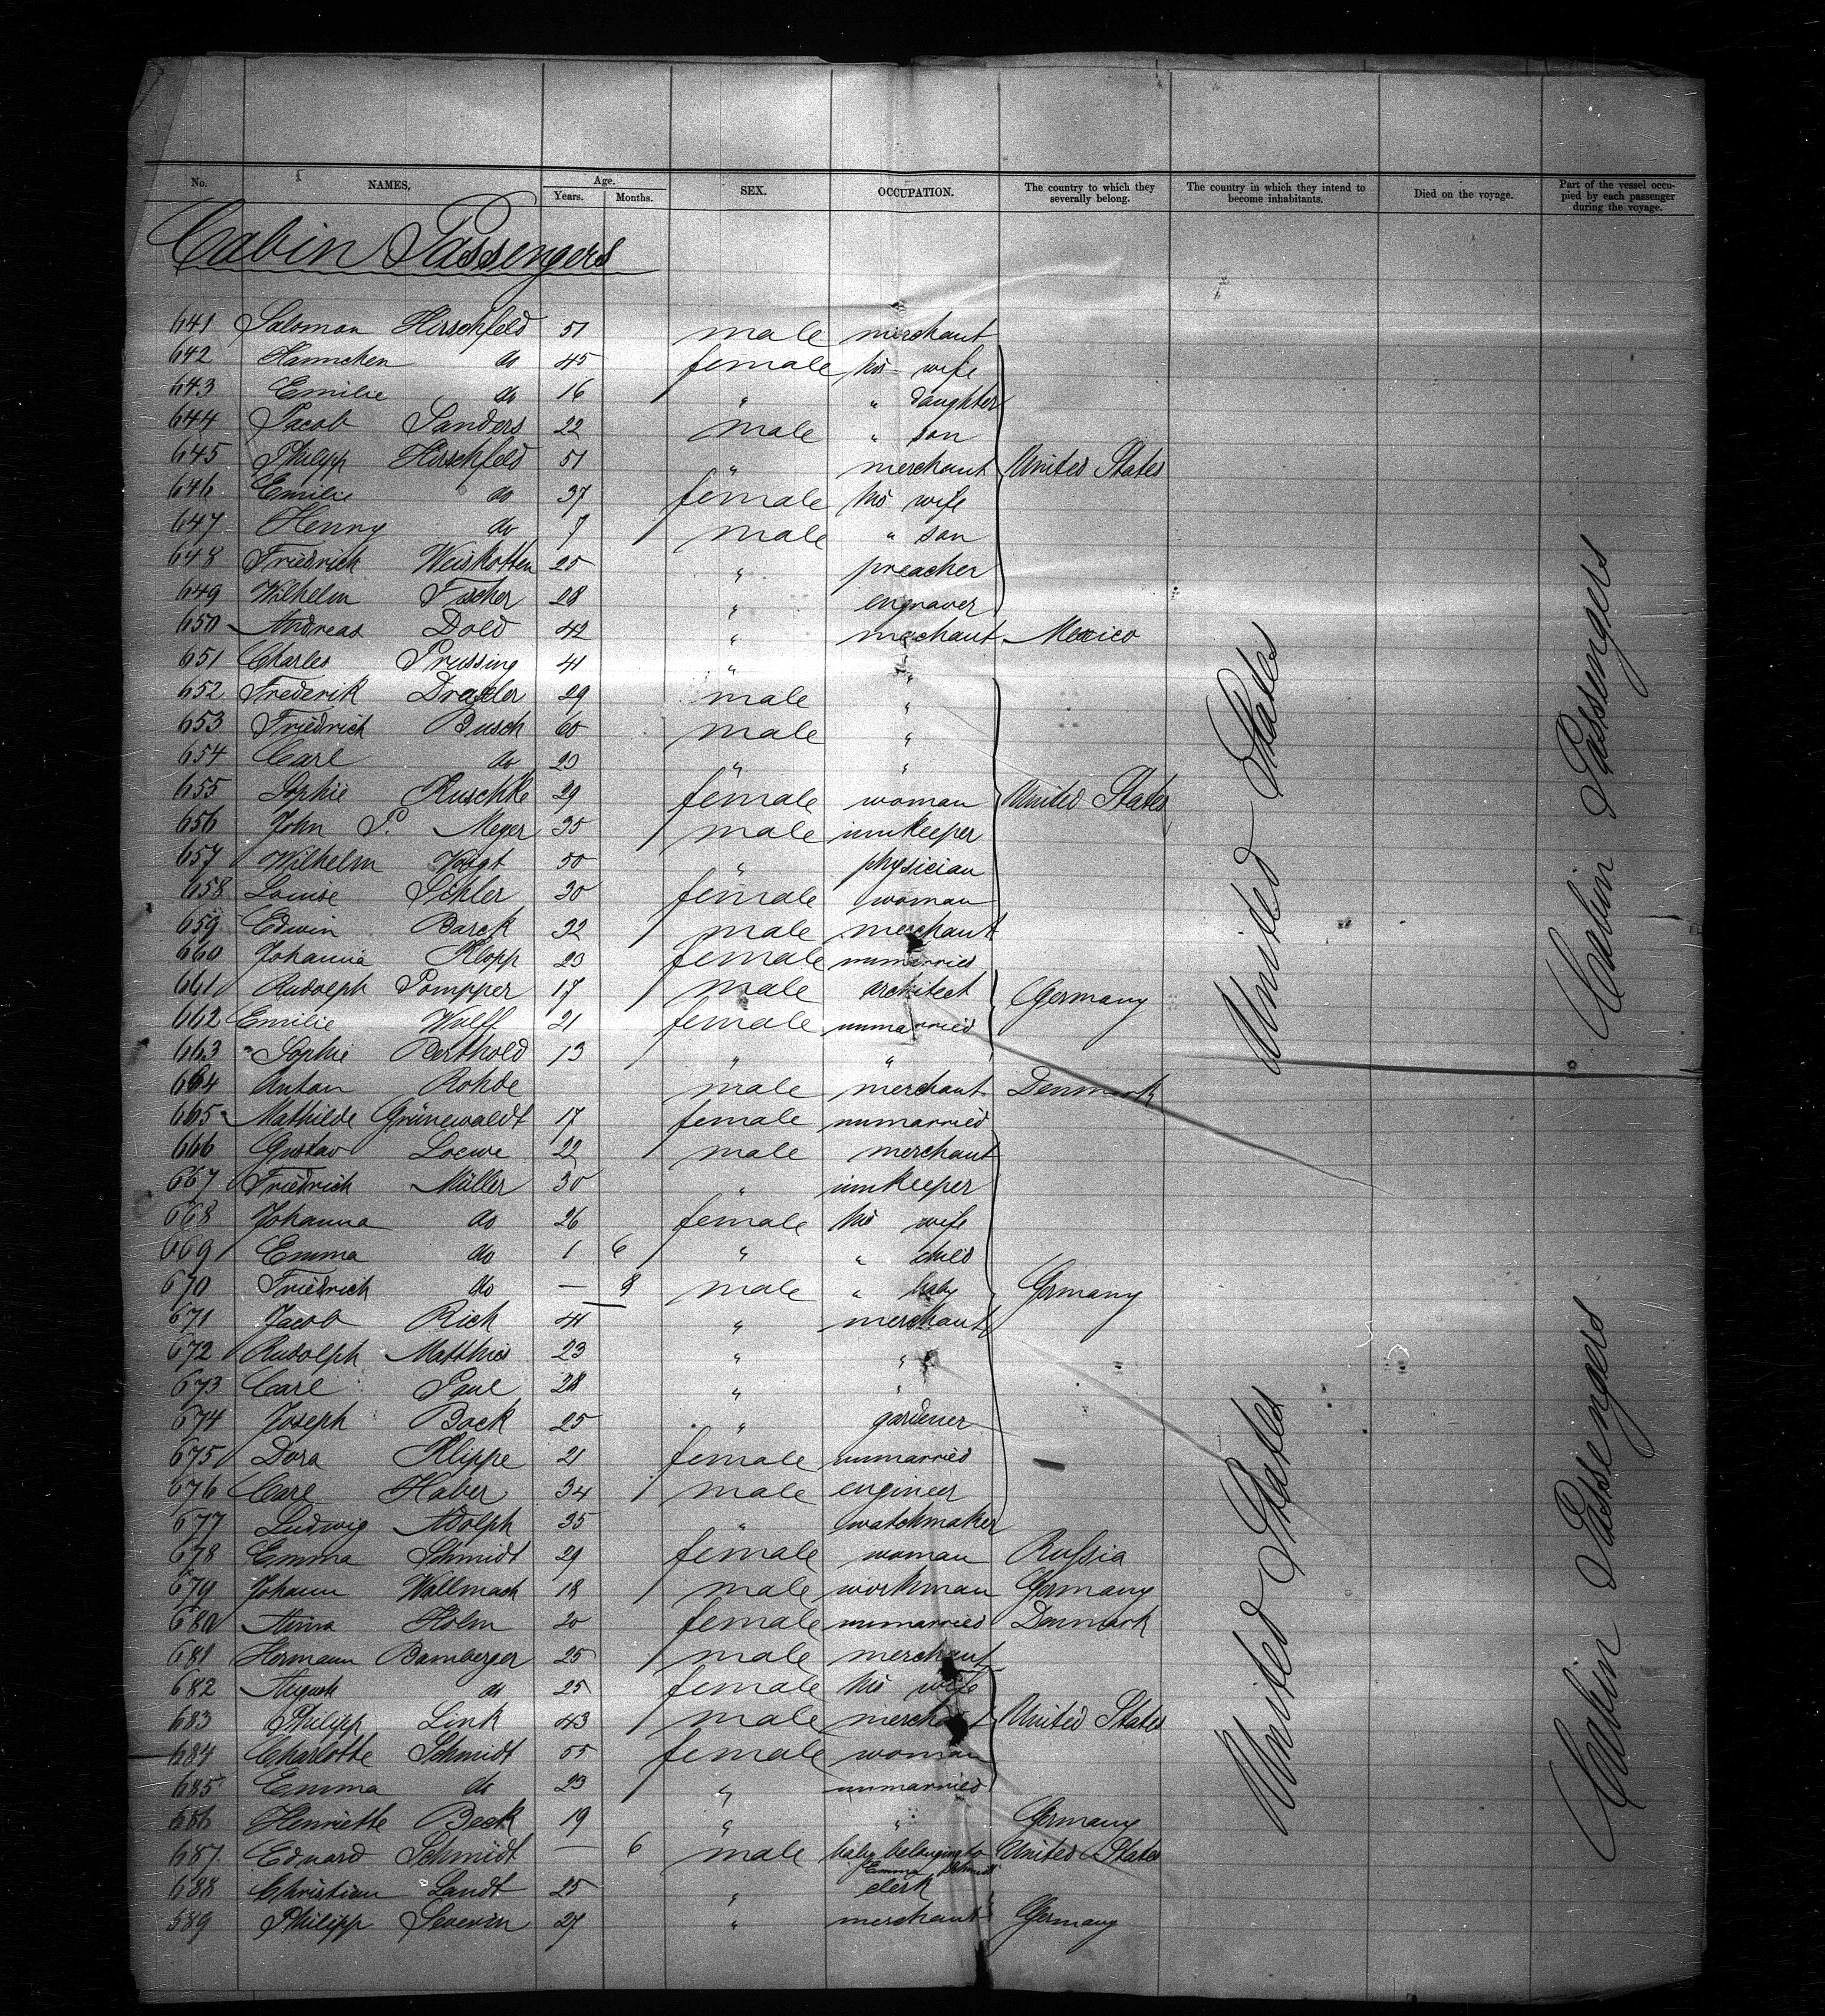 No. NAMES. Age. Years. Months. SEX. OCCUPATION. The country to which they severally belong. The country in which they intend to become inhabitants. Died on the voyage. Part of the vessel occupied by each passenger during the voyage.
Cabin Passengers
641 Salomon Hirschfeld 51 male merchant
642 Hannchen do 45 female his wife
643 Emilie do 16 " " daughter
644 Jacob Sanders 22 male " son
645 Philipp Hirschfeld 51 " merchant United States
646 Emilie do 37 female his wife
647 Henny do 7 male " son
648 Friedrich Weiskotten 25 " preacher
649 Wilhelm Fischer 28 " engraver
650 Andreas Dold 42 " merchant Mexico
651 Charles Prussing 41 " "
652 Frederik Dressler 29 male "
653 Friedrich Busch 60 male "
654 Carl do 23 " "
655 Sophie Ruschke 29 female woman United States
656 John P. Meyer 35 male innkeeper
657 Wilhelm Voigt 50 " physician
658 Louise Sihler 30 female woman
659 Edwin Barck 32 male merchant
660 Johanna Klopp 23 female unmarried
661 Rudolph Pompper 17 male architect Germany
662 Emilie Wolff 21 female unmarried
663 Sophie Berthold 13 " "
664 Anton Rohde male merchant Denmark
665 Mathilde Grünewaldt 17 female unmarried
666 Gustav Loewe 22 male merchant
667 Friedrich Müller 30 " innkeeper
668 Johanna do 26 female his wife
669 Emma do 1 6 " " child
670 Friedrich do — 9 male " baby Germany
671 Jacob Rich 41 " merchant
672 Rudolph Matthies 23 " "
673 Carl Paul 28 " "
674 Joseph Bock 25 " gardener
675 Dora Klippe 21 female unmarried
676 Carl Haber 34 male engineer
677 Ludwig Adolph 35 " watchmaker
678 Emma Schmidt 29 female woman Russia
679 Johann Wallmach 18 male workman Germany
680 Anna Holm 20 female unmarried Denmark
681 Hermann Bamberger 25 male merchant
682 August do 25 female his wife
683 Philipp Link 43 male merchant United States
684 Charlotte Schmidt 55 female woman
685 Emma do 23 " unmarried
686 Henriette Beck 19 " " Germany
687 Eduard Schmidt — 6 male baby belonging to United States
Emma Schmidt
688 Christian Landt 25 " clerk
689 Philipp Severin 27 " merchant Germany
United States
Cabin Passengers
United States
Cabin Passengers